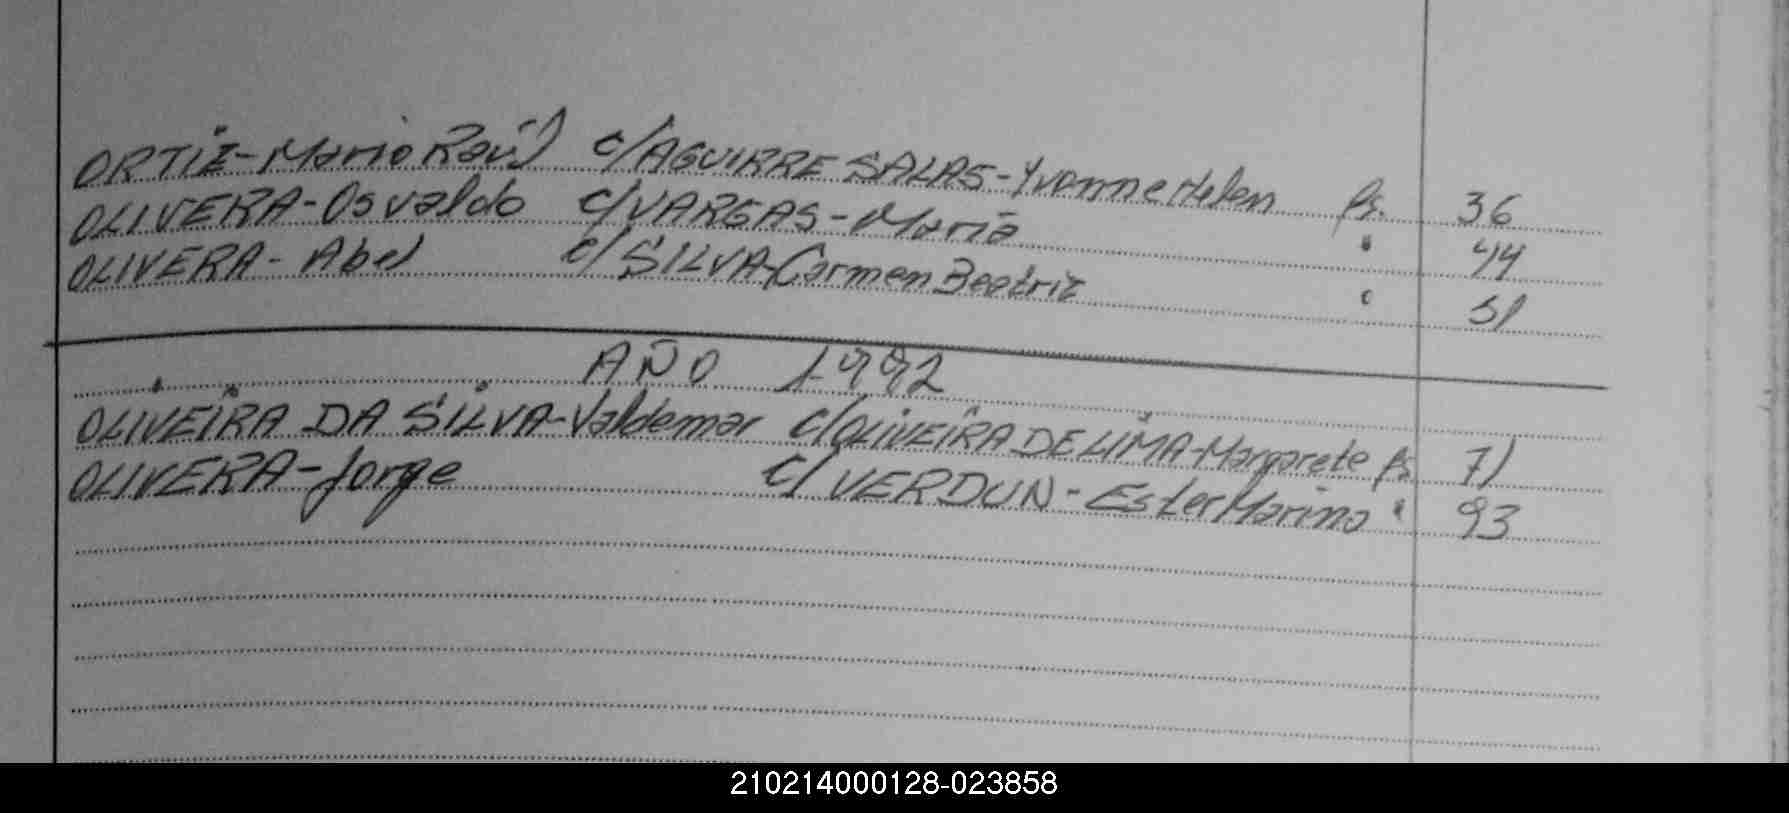 ORTIZ-Mario Raúl c/AGUIRRE SALAS-Yvonne Helen fs. 36
OLIVERA-Osvaldo c/VARGAS-María " 44
OLIVERA-Abel c/SILVA-Carmen Beatriz " 51
AÑO 1992
OLIVEIRA DA SILVA-Valdemar c/OLIVEIRA DE LIMA-Margarete fs. 71
OLIVERA-Jorge c/VERDUN-Ester Marina " 93
210214000128-023858